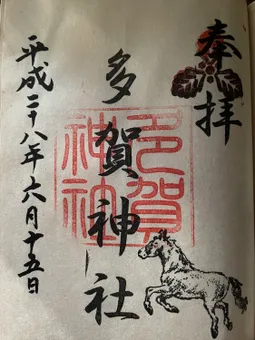 奉拝
多賀神社
多賀
神社
平成二十八年六月十五日